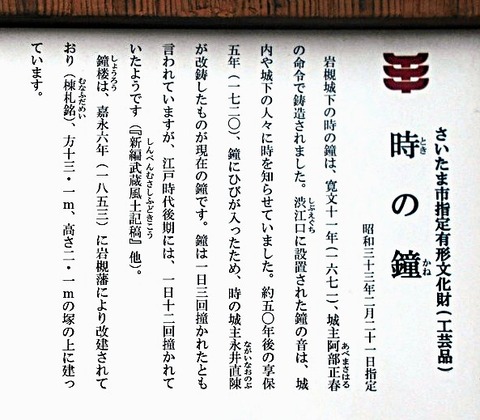 さいたま市指定有形文化財(工芸品)
時の鐘
とき
かね
昭和三十三年二月二十一日指定
岩槻城下の時の鐘は、寛文十一年(一六七一)、城主阿部正春
あべまさはる
の命令で鋳造されました。渋江口に設置された鐘の音は、城
しぶえぐち
内や城下の人々に時を知らせていました。約五〇年後の享保
五年(一七二〇)、鐘にひびが入ったため、時の城主永井直陳
ながいなおのぶ
が改鋳したものが現在の鐘です。鐘は一日三回撞かれたとも
言われていますが、江戸時代後期には、一日十二回撞かれて
いたようです(『新編武蔵風土記稿』他)。
しんぺんむさしふどきこう
鐘楼は、嘉永六年(一八五三)に岩槻藩により改建されて
しょうろう
おり(棟札銘)、方十三・一m、高さ二・一mの塚の上に建っ
むなふだめい
ています。